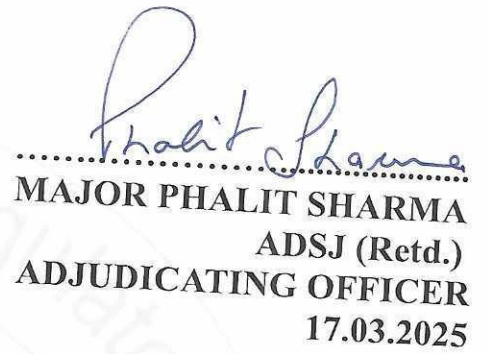 Phalit Sharma
MAJOR PHALIT SHARMA
ADSJ (Retd.)
ADJUDICATING OFFICER
17.03.2025